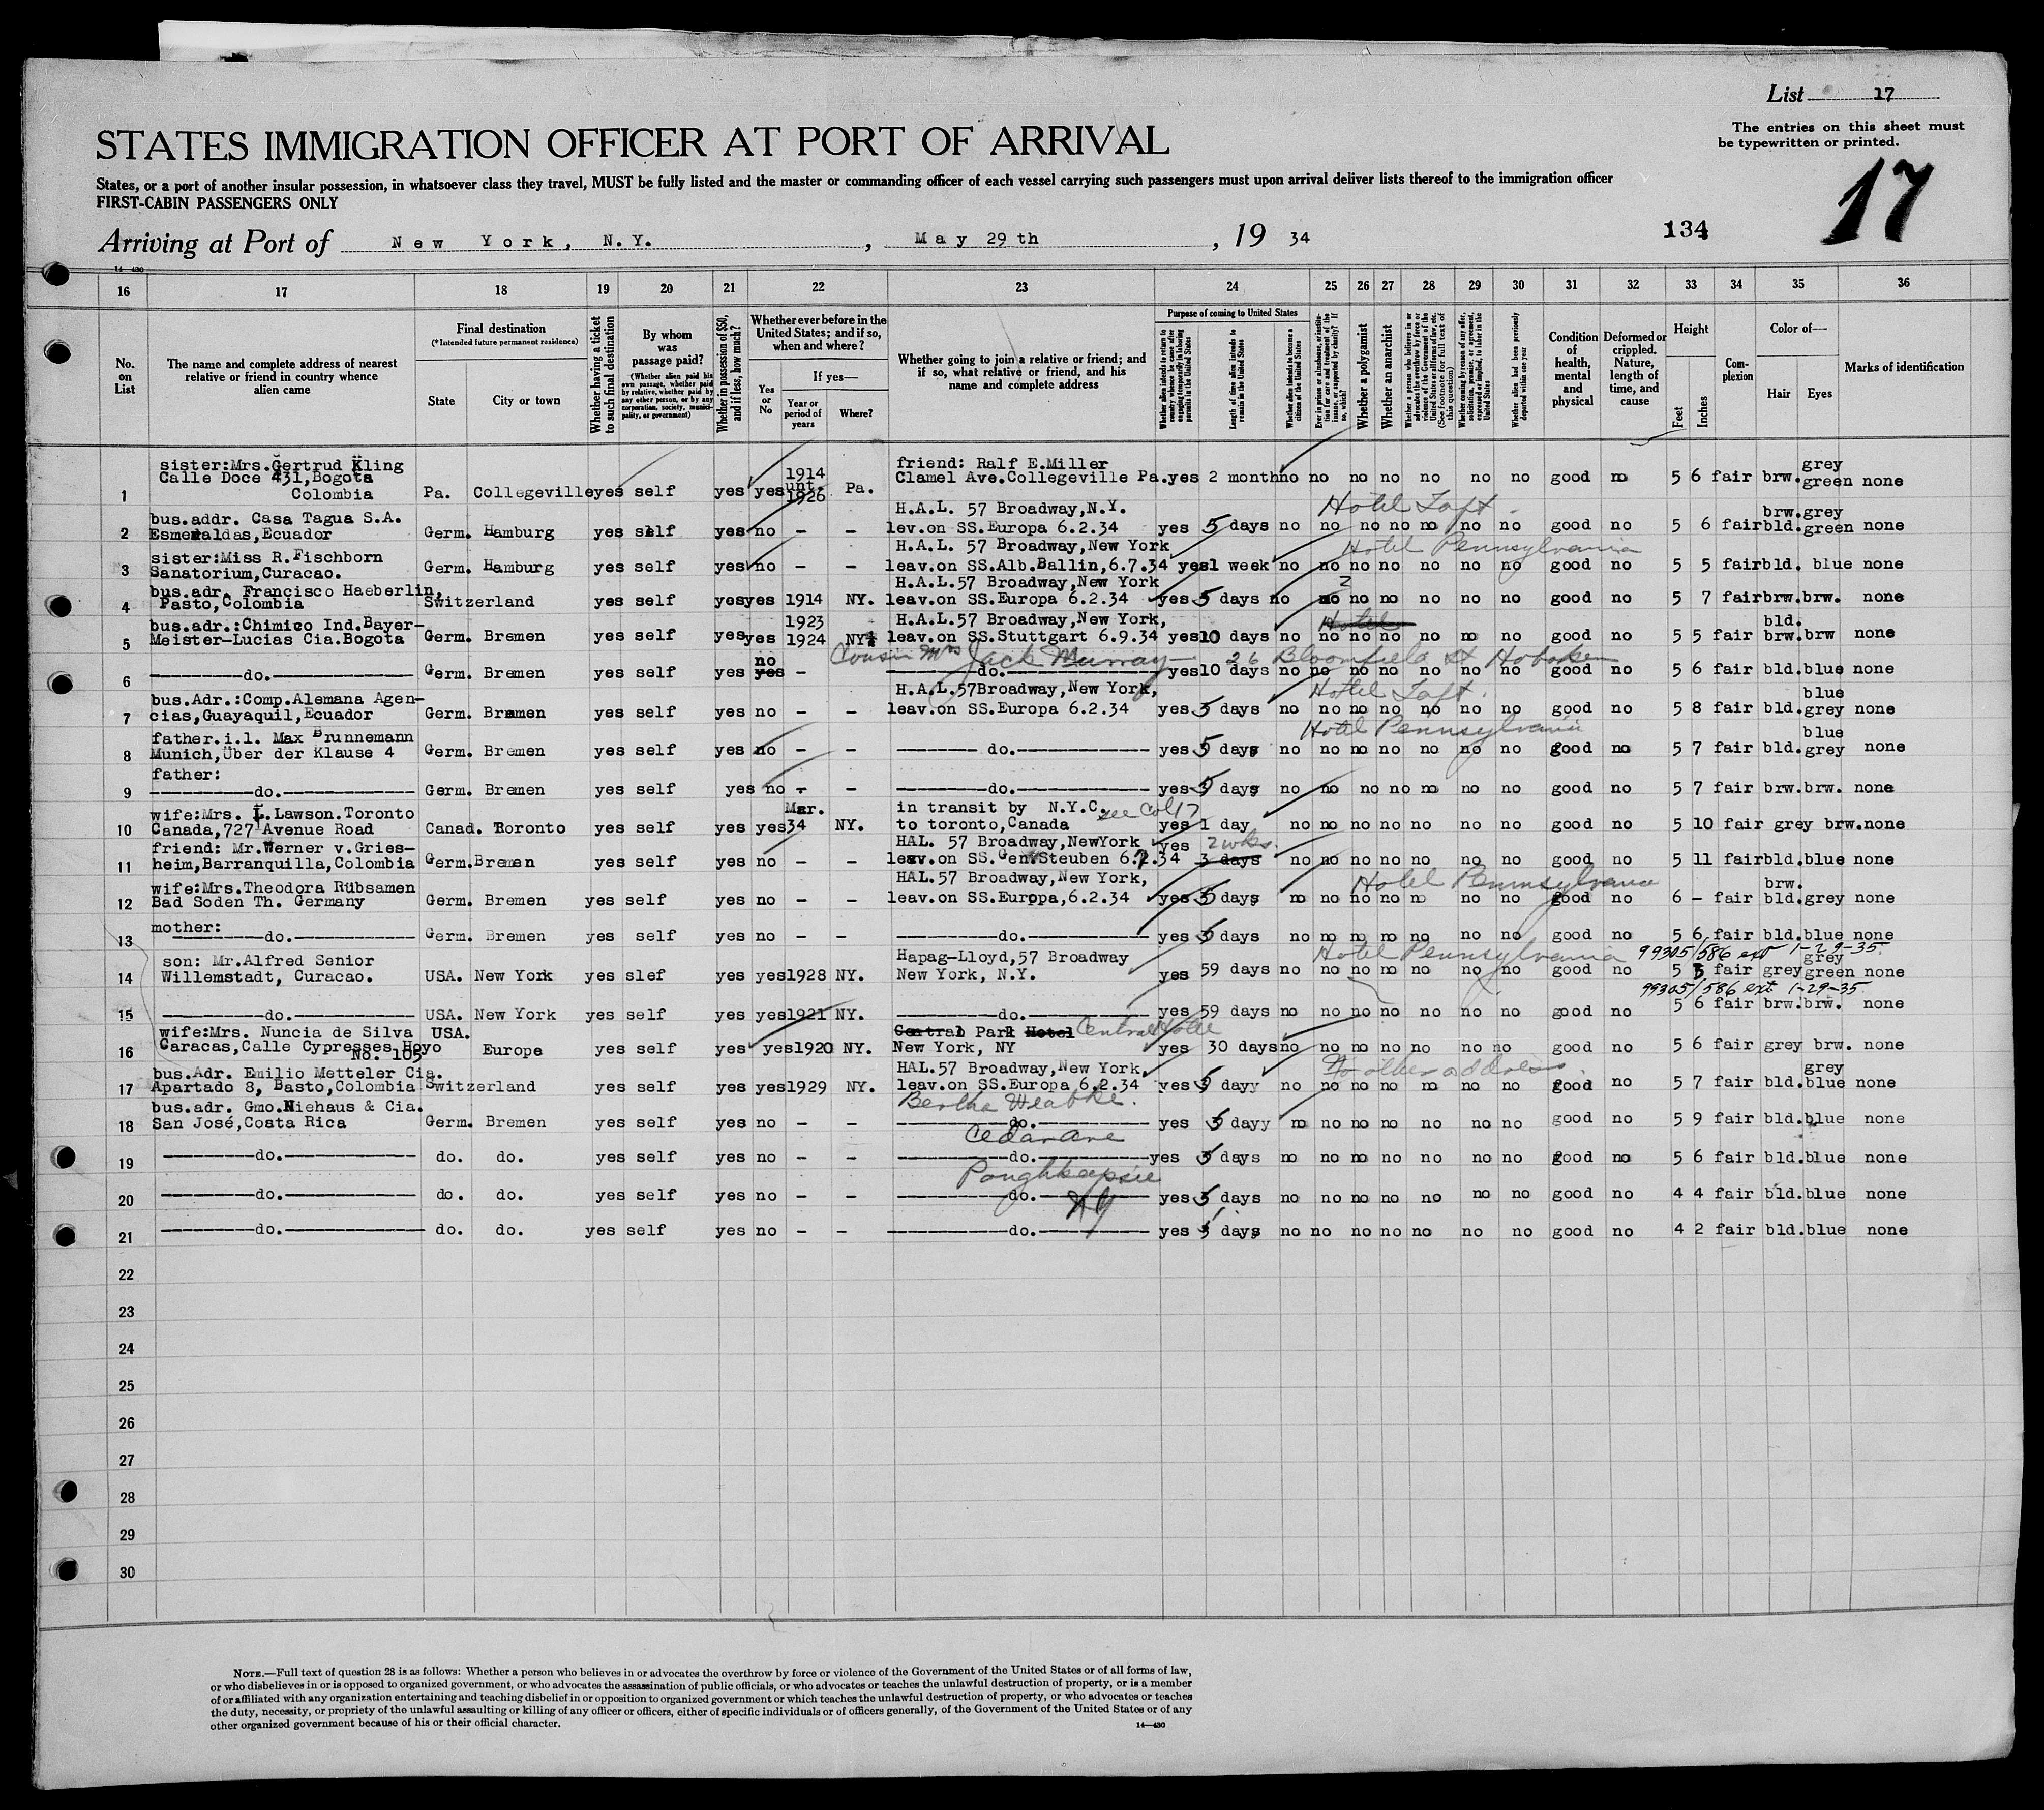 List 17
The entries on this sheet must
be typewritten or printed.
STATES IMMIGRATION OFFICER AT PORT OF ARRIVAL
States, or a port of another insular possession, in whatsoever class they travel, MUST be fully listed and the master or commanding officer of each vessel carrying such passengers must upon arrival deliver lists thereof to the immigration officer
FIRST-CABIN PASSENGERS ONLY
17
134
Arriving at Port of New York, N.Y. , May 29th , 19 34
14—430
16 17 18 19 20 21 22 23 24 25 26 27 28 29 30 31 32 33 34 35 36
No. on List
The name and complete address of nearest relative or friend in country whence alien came
Final destination
(*Intended future permanent residence)
State City or town
Whether having a ticket to such final destination
By whom was passage paid?
(Whether alien paid his own passage, whether paid by relative, whether paid by any other person, or by any corporation, society, municipality, or government)
Whether in possession of $50, and if less, how much?
Whether ever before in the United States; and if so, when and where?
Yes or No
If yes—
Year or period of years
Where?
Whether going to join a relative or friend; and if so, what relative or friend, and his name and complete address
Purpose of coming to United States
Length of time alien intends to remain in the United States
Whether alien intends to become a citizen of the United States
Whether a polygamist
Whether an anarchist
Condition of health, mental and physical
Deformed or crippled. Nature, length of time, and cause
Height
Feet Inches
Complexion
Color of—
Hair Eyes
Marks of identification
sister:Mrs.Gertrud Kling 1914 friend: Ralf E.Miller grey
Calle Doce 431,Bogota unt. Clamel Ave.Collegeville Pa. yes 2 month no no no no no no no good no 5 6 fair brw. green none
1 Colombia Pa. Collegeville yes self yes yes 1926 Pa.
bus.addr. Casa Tagua S.A. H.A.L. 57 Broadway,N.Y. Hotel Taft brw.grey
2 Esmeraldas,Ecuador Germ. Hamburg yes self yes no - - lev.on SS.Europa 6.2.34 yes 5 days no no no no no no no good no 5 6 fair bld.green none
sister:Miss R.Fischborn H.A.L. 57 Broadway,New York Hotel Pennsylvania
3 Sanatorium,Curacao. Germ. Hamburg yes self yes no - - leav.on SS.Alb.Ballin,6.7.34 yes 1 week no no no no no no no good no 5 5 fair bld. blue none
bus.adr. Francisco Haeberlin, H.A.L.57 Broadway,New York
4 Pasto,Colombia Switzerland yes self yes yes 1914 NY. leav.on SS.Europa 6.2.34 yes 5 days no no no no no no no good no 5 7 fair brw.brw. none
bus.adr.:Chimico Ind.Bayer- 1923 H.A.L.57 Broadway,New York, Hotel bld.
5 Meister-Lucias Cia.Bogota Germ. Bremen yes self yes yes 1924 NY. leav.on SS.Stuttgart 6.9.34 yes 10 days no no no no no no no good no 5 5 fair brw.brw none
no Cousin Mrs Jack Murray 26 Bloomfield St Hoboken
6 do. Germ. Bremen yes self yes yes - do. yes 10 days no no no no no no no good no 5 6 fair bld.blue none
bus.Adr.:Comp.Alemana Agen- H.A.L.57Broadway,New York, Hotel Taft. blue
7 cias,Guayaquil,Ecuador Germ. Bremen yes self yes no - - leav.on SS.Europa 6.2.34 yes 5 days no no no no no no no good no 5 8 fair bld.grey none
father.i.l. Max Brunnemann Hotel Pennsylvania blue
8 Munich,Über der Klause 4 Germ. Bremen yes self yes no - - do. yes 5 days no no no no no no no good no 5 7 fair bld.grey none
father:
9 do. Germ. Bremen yes self yes no - - do. yes 5 days no no no no no no no good no 5 7 fair brw.brw. none
wife:Mrs. L.Lawson.Toronto Mar. in transit by N.Y.C. see Col 17
10 Canada,727 Avenue Road Canad. Toronto yes self yes yes 34 NY. to toronto,Canada yes 1 day no no no no no no no good no 5 10 fair grey brw.none
friend: Mr.Werner v.Gries- HAL. 57 Broadway,NewYork yes 2 wks.
11 heim,Barranquilla,Colombia Germ.Bremen yes self yes no - - leav.on SS.Gen.vSteuben 6.7.34 3 days no no no no no no no good no 5 11 fair bld.blue none
wife:Mrs.Theodora Rübsamen HAL.57 Broadway,New York, Hotel Pennsylvania brw.
12 Bad Soden Th. Germany Germ. Bremen yes self yes no - - leav.on SS.Europa,6.2.34 yes 5 days no no no no no no no good no 6 - fair bld.grey none
mother:
13 do. Germ. Bremen yes self yes no - - do. yes 5 days no no no no no no no good no 5 6 fair bld.blue none
son: Mr.Alfred Senior Hapag-Lloyd,57 Broadway Hotel Pennsylvania 99305/586 ext 1-29-35. grey
14 Willemstadt, Curacao. USA. New York yes slef yes yes 1928 NY. New York, N.Y. yes 59 days no no no no no no no good no 5 3 fair grey green none
99305/586 ext 1-29-35.
15 do. USA. New York yes self yes yes 1921 NY. do. yes 59 days no no no no no no no good no 5 6 fair brw.brw. none
wife:Mrs. Nuncia de Silva USA. Central Park Hotel Central Hotel
16 Caracas,Calle Cypresses Hoyo Europe yes self yes yes 1920 NY. New York, NY yes 30 days no no no no no no no good no 5 6 fair grey brw. none
No. 105
bus.Adr. Emilio Metteler Cia. HAL.57 Broadway,New York, No other address. grey
17 Apartado 8, Basto,Colombia Switzerland yes self yes yes 1929 NY. leav.on SS.Europa 6.2.34 yes 5 dayy no no no no no no no good no 5 7 fair bld.blue none
bus.adr. Gmo.Niehaus & Cia. Bertha
18 San José,Costa Rica Germ. Bremen yes self yes no - - do. yes 5 dayy no no no no no no no good no 5 9 fair bld.blue none
Cedar Ave
19 do. do. do. yes self yes no - - do. yes 5 days no no no no no no no good no 5 6 fair bld.blue none
Poughkeepsie
20 do. do. do. yes self yes no - - do. yes 5 days no no no no no no no good no 4 4 fair bld.blue none
NY
21 do. do. do. yes self yes no - - do. yes 5 days no no no no no no no good no 4 2 fair bld.blue none
22
23
24
25
26
27
28
29
30
NOTE.—Full text of question 28 is as follows: Whether a person who believes in or advocates the overthrow by force or violence of the Government of the United States or of all forms of law,
or who disbelieves in or is opposed to organized government, or who advocates the assassination of public officials, or who advocates or teaches the unlawful destruction of property, or is a member
of or affiliated with any organization entertaining and teaching disbelief in or opposition to organized government or which teaches the unlawful destruction of property, or who advocates or teaches
the duty, necessity, or propriety of the unlawful assaulting or killing of any officer or officers, either of specific individuals or of officers generally, of the Government of the United States or of any
other organized government because of his or their official character.
14—430